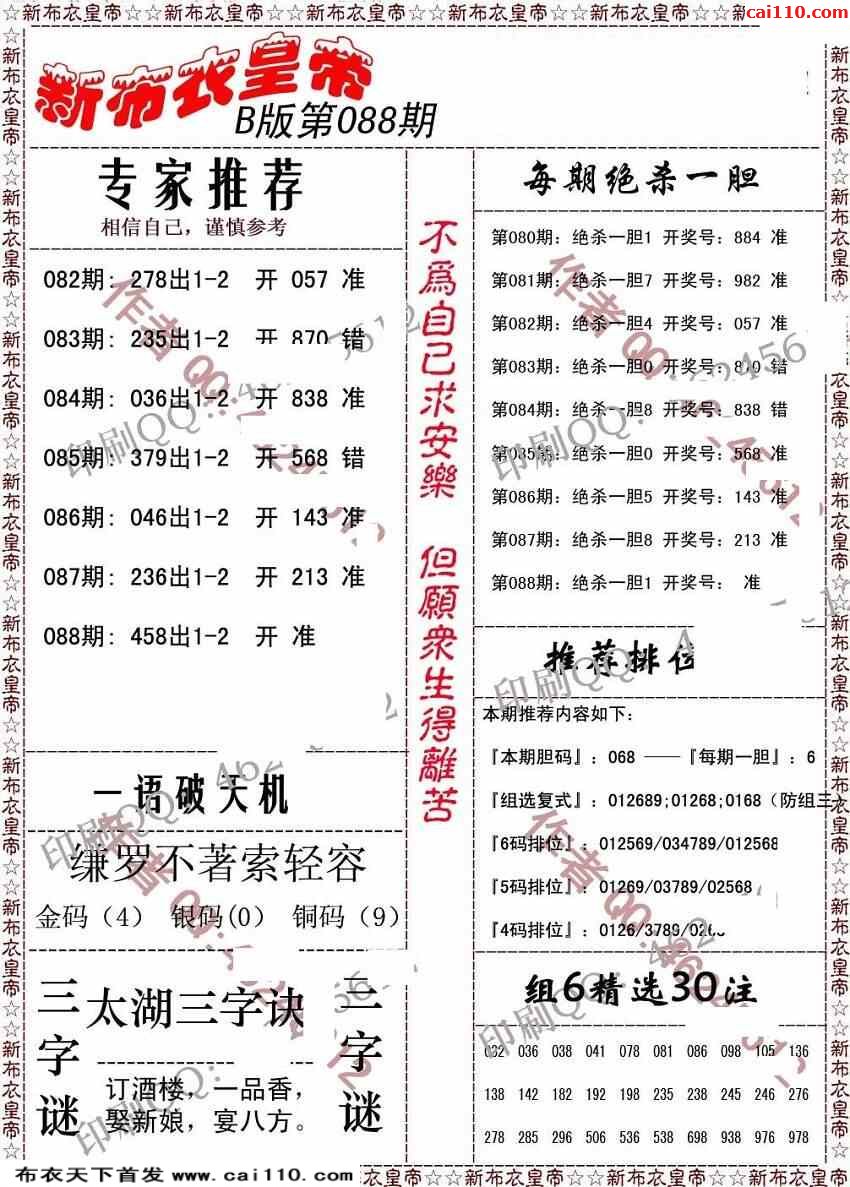 ☆新布衣皇帝☆☆新布衣皇帝☆☆新布衣皇帝☆☆新布衣皇帝☆☆新布衣皇帝☆☆新
cai110.com
新布衣皇帝
B版第088期
专家推荐
相信自己，谨慎参考
082期: 278出1-2 开 057 准
083期: 235出1-2 开 870 错
084期: 036出1-2 开 838 准
085期: 379出1-2 开 568 错
086期: 046出1-2 开 143 准
087期: 236出1-2 开 213 准
088期: 458出1-2 开 准
一语破天机
缣罗不著索轻容
金码（4） 银码(0) 铜码（9）
三字谜
太湖三字诀
订酒楼，一品香，
娶新娘，宴八方。
三字谜
不爲自己求安樂 但願衆生得離苦
每期绝杀一胆
第080期: 绝杀一胆1 开奖号: 884 准
第081期: 绝杀一胆7 开奖号: 982 准
第082期: 绝杀一胆4 开奖号: 057 准
第083期: 绝杀一胆0 开奖号: 870 错
第084期: 绝杀一胆8 开奖号: 838 错
第085期: 绝杀一胆0 开奖号: 568 准
第086期: 绝杀一胆5 开奖号: 143 准
第087期: 绝杀一胆8 开奖号: 213 准
第088期: 绝杀一胆1 开奖号: 准
推荐排位
本期推荐内容如下:
『本期胆码』: 068 ——『每期一胆』: 6
『组选复式』: 012689;01268;0168（防组三）
『6码排位』: 012569/034789/012568
『5码排位』: 01269/03789/02568
『4码排位』: 0126/3789/0268
组6精选30注
032 036 038 041 078 081 086 098 105 136
138 142 182 192 198 235 238 245 246 276
278 285 296 506 536 538 698 938 976 978
布衣天下首发 www.cai110.com
衣皇帝☆☆新布衣皇帝☆☆新布衣皇帝☆☆新布衣皇帝☆